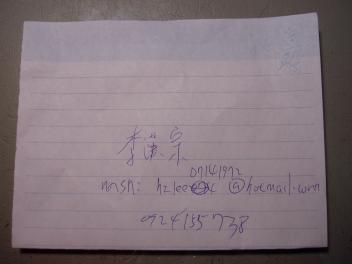 李漢宗
07141972
msn: hzlee @hotmail.com
0924155738